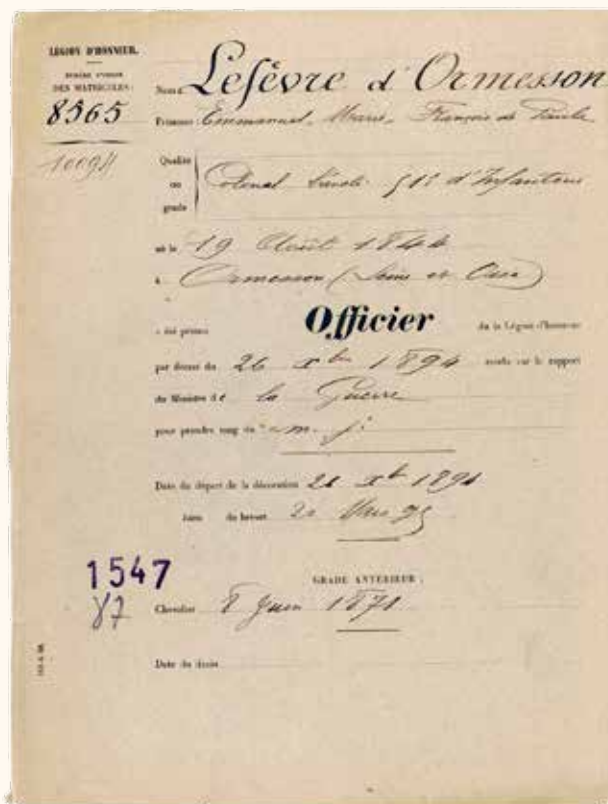 LÉGION D'HONNEUR.
NUMÉRO D'ORDRE
DES MATRICULES:
8565
10094
Nom: Lefèvre d'Ormesson
Prénoms: Emmanuel, Marie, François de Paule
Qualité
ou
grade
Colonel 51e d'Infanterie
né le 19 Août 1844
à Ormesson (Seine et Oise)
a été promu Officier de la Légion d'honneur
par décret du 26 xbre 1894 rendu sur le rapport
du Ministre de la Guerre
pour prendre rang du m. j.
Date du départ de la décoration 28 xbre 1894
du brevet 20 Mars 95
1547
87
GRADE ANTÉRIEUR:
Chevalier 8 Juin 1871
Date du décès